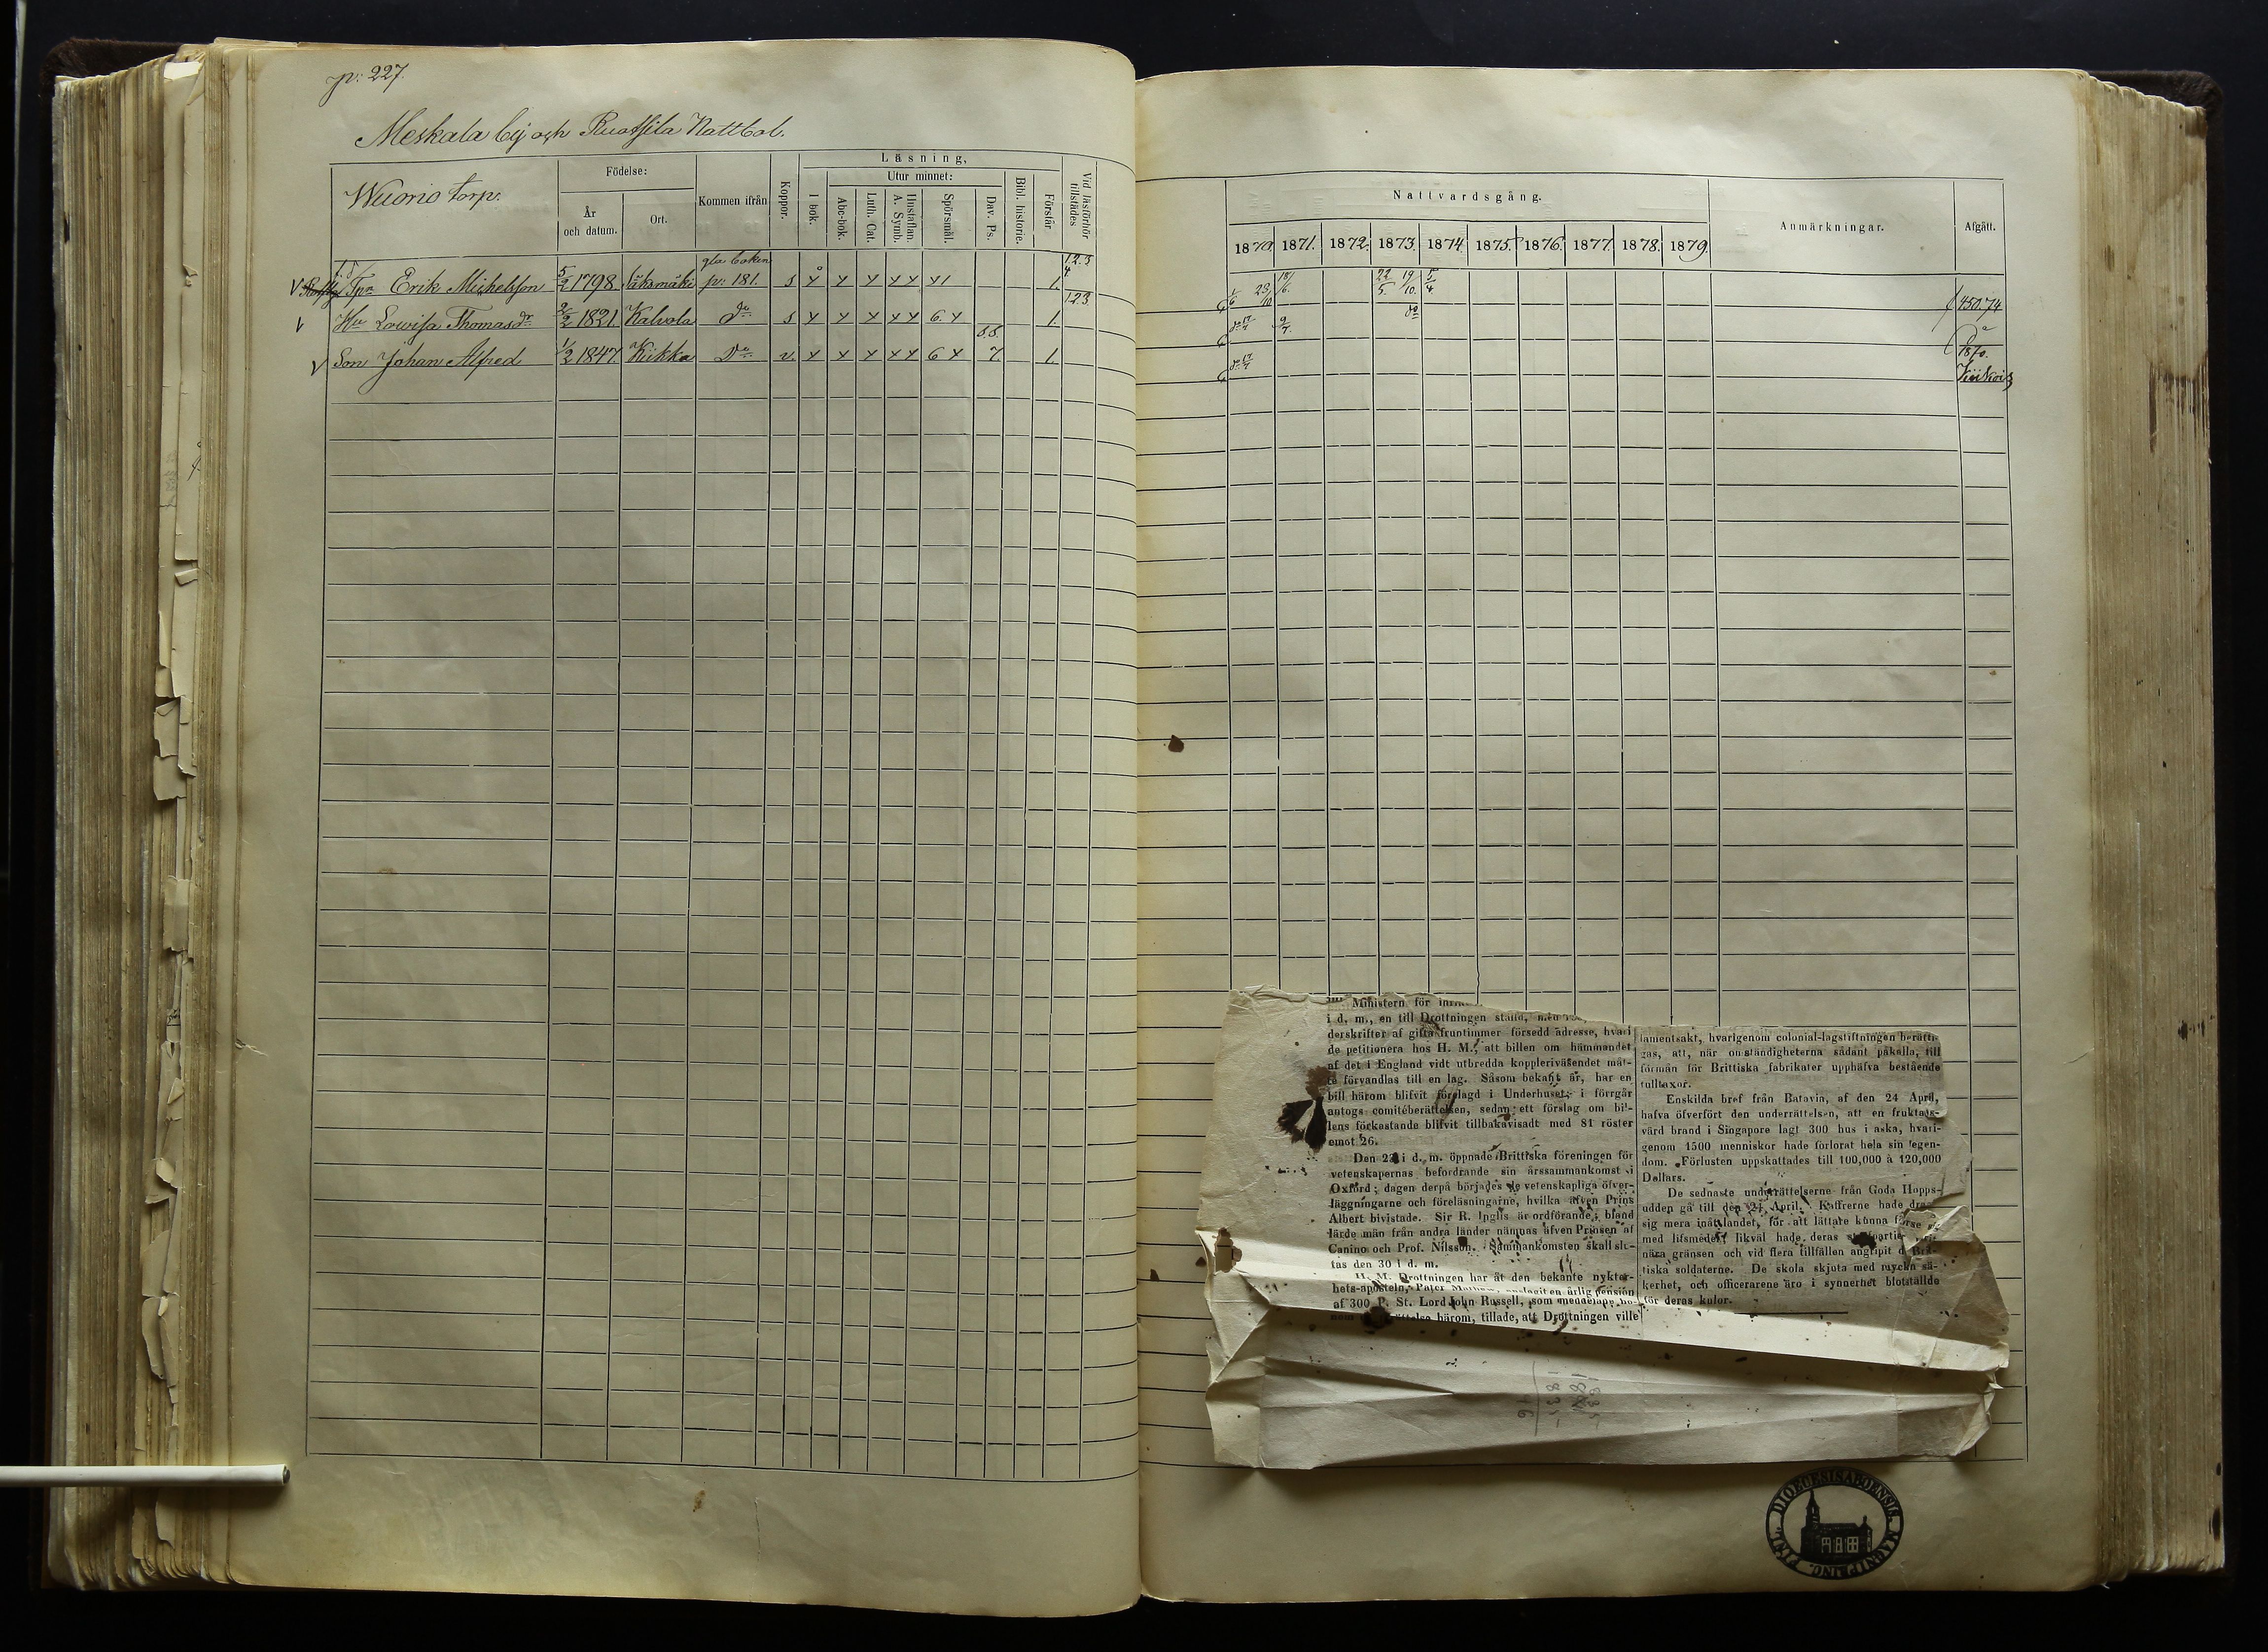 p: 227.
Meskala by och Ruotsila Rattbol.
Wuorio torp.
Födelse:
År och datum.
Ort.
Kommen ifrån
Koppor.
Läsning,
I bok.
Utur minnet:
Abc-bok.
Luth. Cat.
Hustaflan. A. Symb.
Spörsmål.
Dav. Ps.
Bibl. historie.
Förstår
Vid läsförhör tillstädes
Nattvardsgång.
1870. 1871. 1872. 1873. 1874. 1875. 1876. 1877. 1878. 1879.
Anmärkningar.
Afgått.
gla boken
Erik Michelsson 5/2 1798 p: 181. s 1. 123 4
22/5. 19/10. 5/4 450.74
Hu Lowisa Thomasdr 2/2 1821 Kalvola do s 6. 1. 123
9/7. do
Son Johan Alfred 1/2 1847 Kiikka Do v. 6 7. 1.
1870.
Kiikois
Ministern för
i d. m., en till Drottningen
derskrifter af gifta fruntimmer försedd adresse, hvari
de petitionera hos H. M., att billen om hämmandet
af det i England vidt utbredda koppleriväsendet måt-
te förvandlas till en lag. Såsom bekant är, har en
bill härom blifvit förelagd i Underhuset; i förrgår
antogs comitéberättelsen, sedan ett förslag om bil-
lens förkastande blifvit tillbakavisadt med 81 röster
emot 26.
Den 23 i d. m. öppnade Brittiska föreningen för
vetenskapernas befordrande sin årssammankomst i
Oxford; dagen derpå börjades de vetenskapliga öfver-
läggningarne och föreläsningarne, hvilka äfven Prins
Albert bivistade. Sir R. Inglis är ordförande; bland
lärde män från andra länder nämnas äfven Prinsen af
Canino och Prof. Nilsson. Sammankomsten skall slu-
tas den 30 i d. m.
H. M. Drottningen har åt den bekante nykter-
hets-aposteln, Pater anslagit en årlig pension
af 300 P. St. Lord John Russell, som meddelade
härom, tillade, att Drottningen ville
lamentsakt, hvarigenom colonial-lagstiftningen berätti-
gas, att, när omständigheterna sådant påkalla, till
förmån för Brittiska fabrikater upphäfva bestående
tulltaxor.
Enskilda bref från Batavia, af den 24 April,
hafva öfverfört den underrättelsen, att en fruktans-
värd brand i Singapore lagt 300 hus i aska, hvari-
genom 1500 menniskor hade förlorat hela sin egen-
dom. Förlusten uppskattades till 100,000 à 120,000
Dollars.
De sednaste underrättelserne från Goda Hopps-
udden gå till den 24 April. Kaffrerne hade
sig mera inåt landet, för att lättare kunna förse
med lifsmedel; likväl hade deras
nära gränsen och vid flera tillfällen angripit
tiska soldaterne. De skola skjuta med mycken sä-
kerhet, och officerarene äro i synnerhet blotställde
för deras kulor.
DIOECESIS ABOENSIS. MAGNI PRINC. FINL.